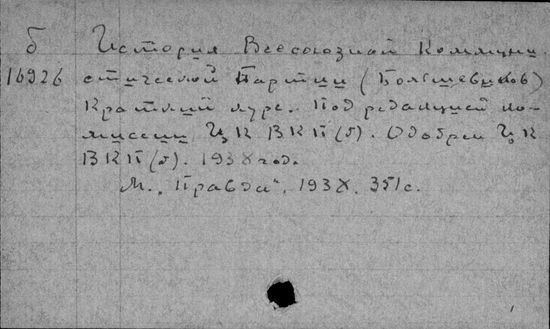 б История Всесоюзной Коммуни
16926 стической Партии (Большевиков)
Краткий курс. Под редакцией ко-
миссии ЦК ВКП(б). Одобрен ЦК
ВКП(б). 1938 год.
М., "Правда", 1938. 351 с.